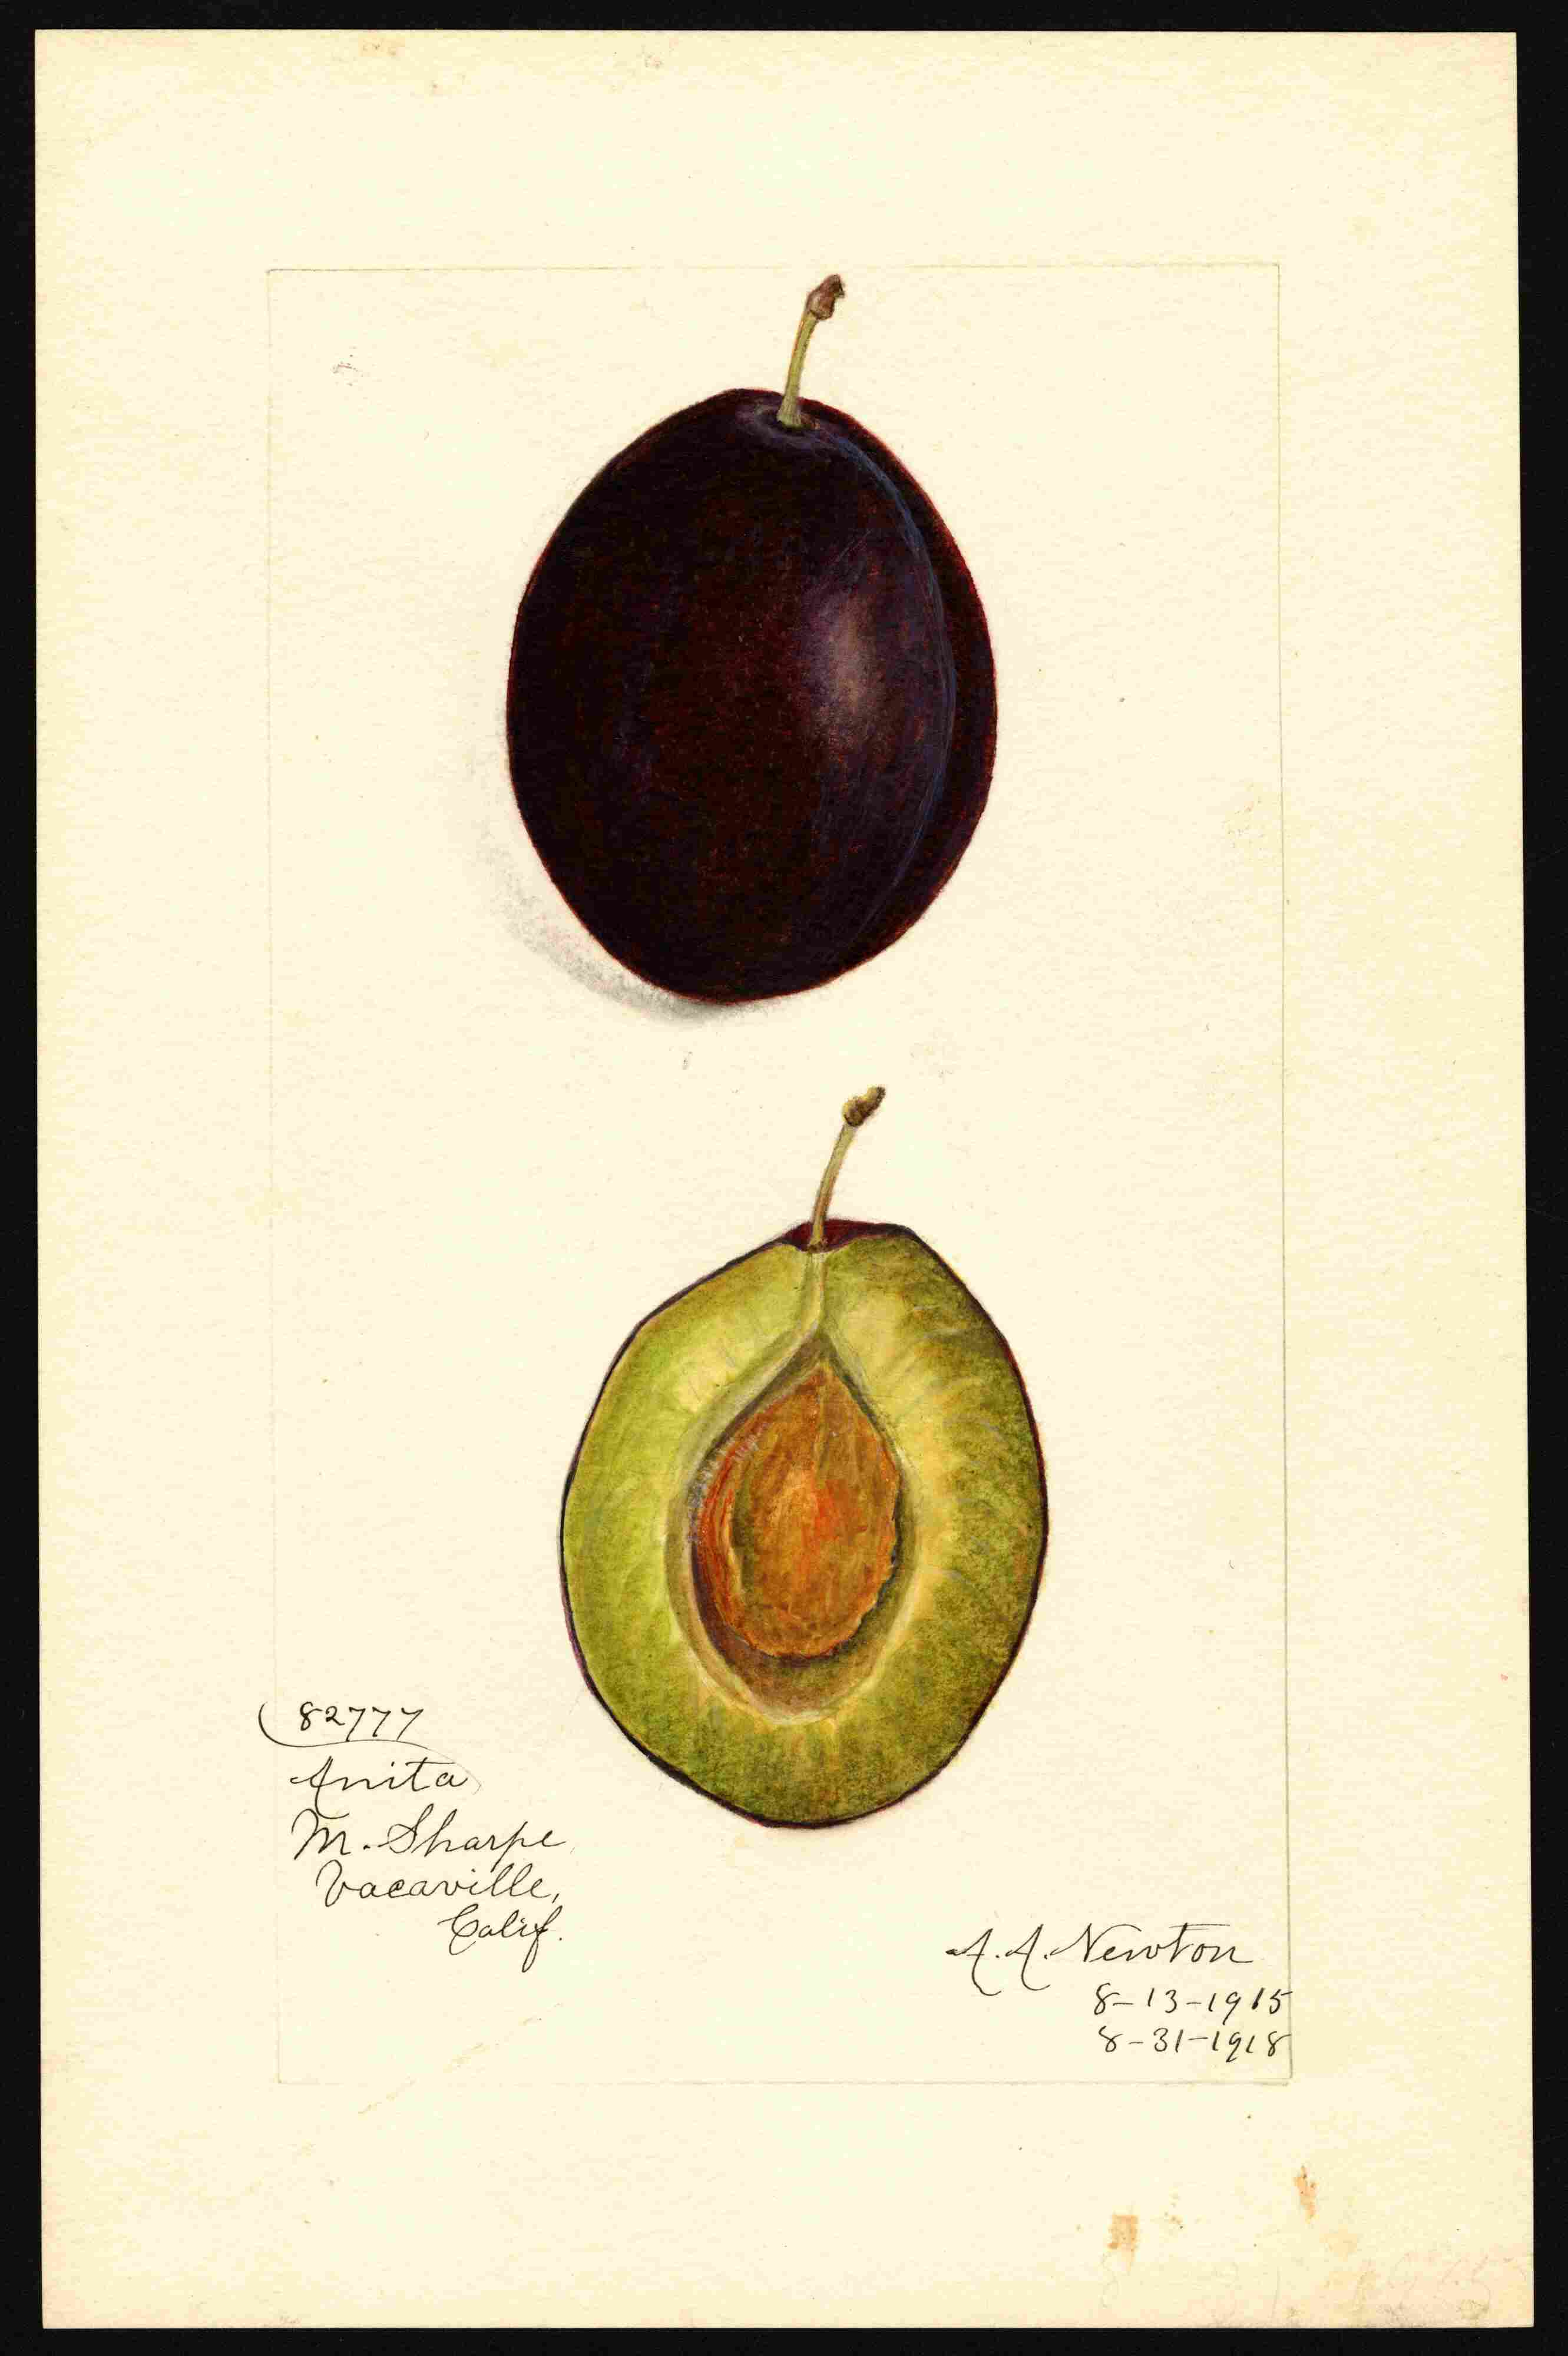 82777
Anita
M. Sharpe
Vacaville,
Calif.
A. A. Newton
8-13-1915
8-31-1918